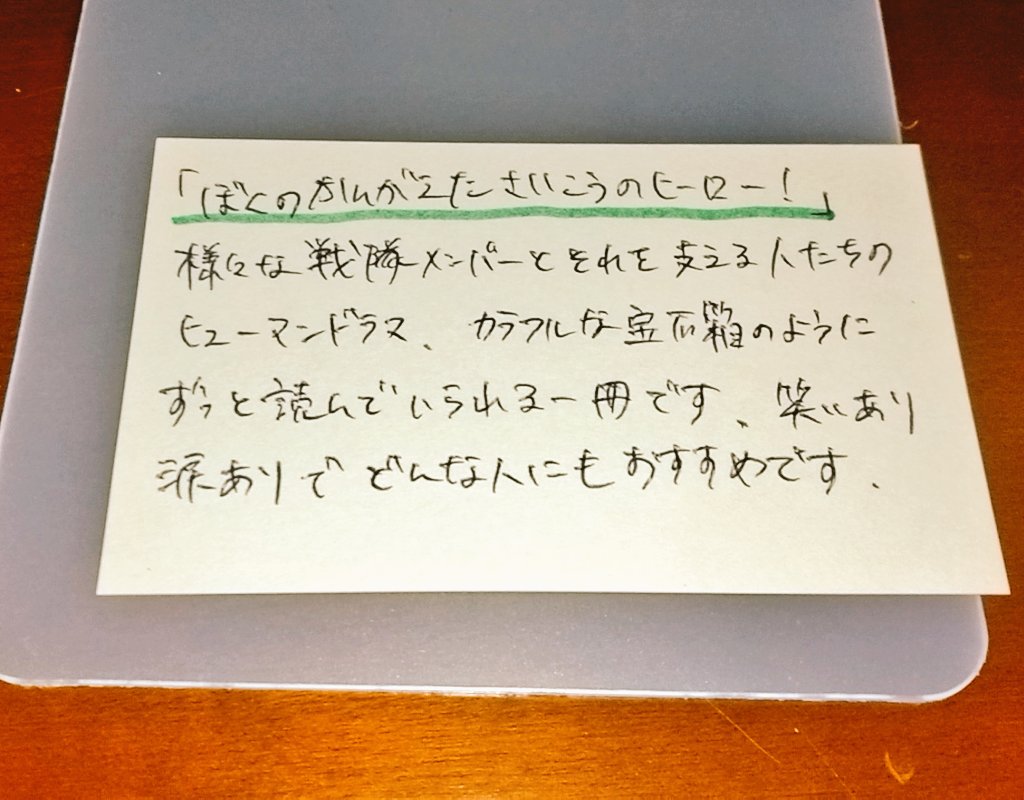 「ぼくのかんがえたさいこうのヒーロー!」
様々な戦隊メンバーとそれを支える人たちの
ヒューマンドラマ、カラフルな宝石箱のように
ずっと読んでいられる一冊です、笑いあり
涙ありでどんな人にもおすすめです、